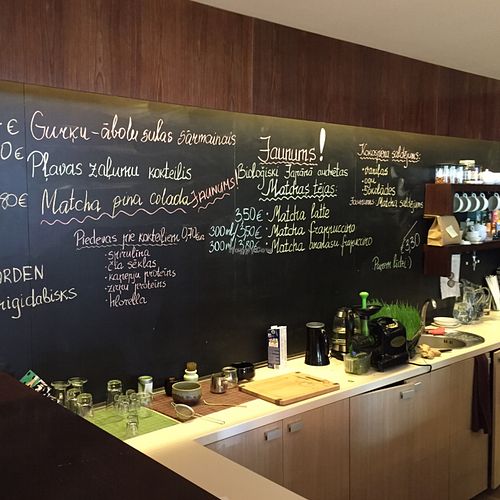 €
Gurķu-ābolu sulas sārmainais
0€
Pļavas zaļumu kokteilis
80€
Matcha pina colada JAUNUMS!
Piedevas pie kokteiļiem 0,70
• spirulīna
• čia sēklas
• kaņepju proteīns
• zirņu proteīns
• hlorella
ORDEN
Jaunums!
Bioloģiski Japānā audzētas
Matchas tējas:
3,50€ • Matcha latte
300ml/3,50€ • Matcha frappuccino
300ml/3,80€ • Matcha ananasu frapuccino
Kokosriena saldējums:
• vaniļas
• ogu
• šokolādes
Jaunums - Matcha saldējums
€ 2,30